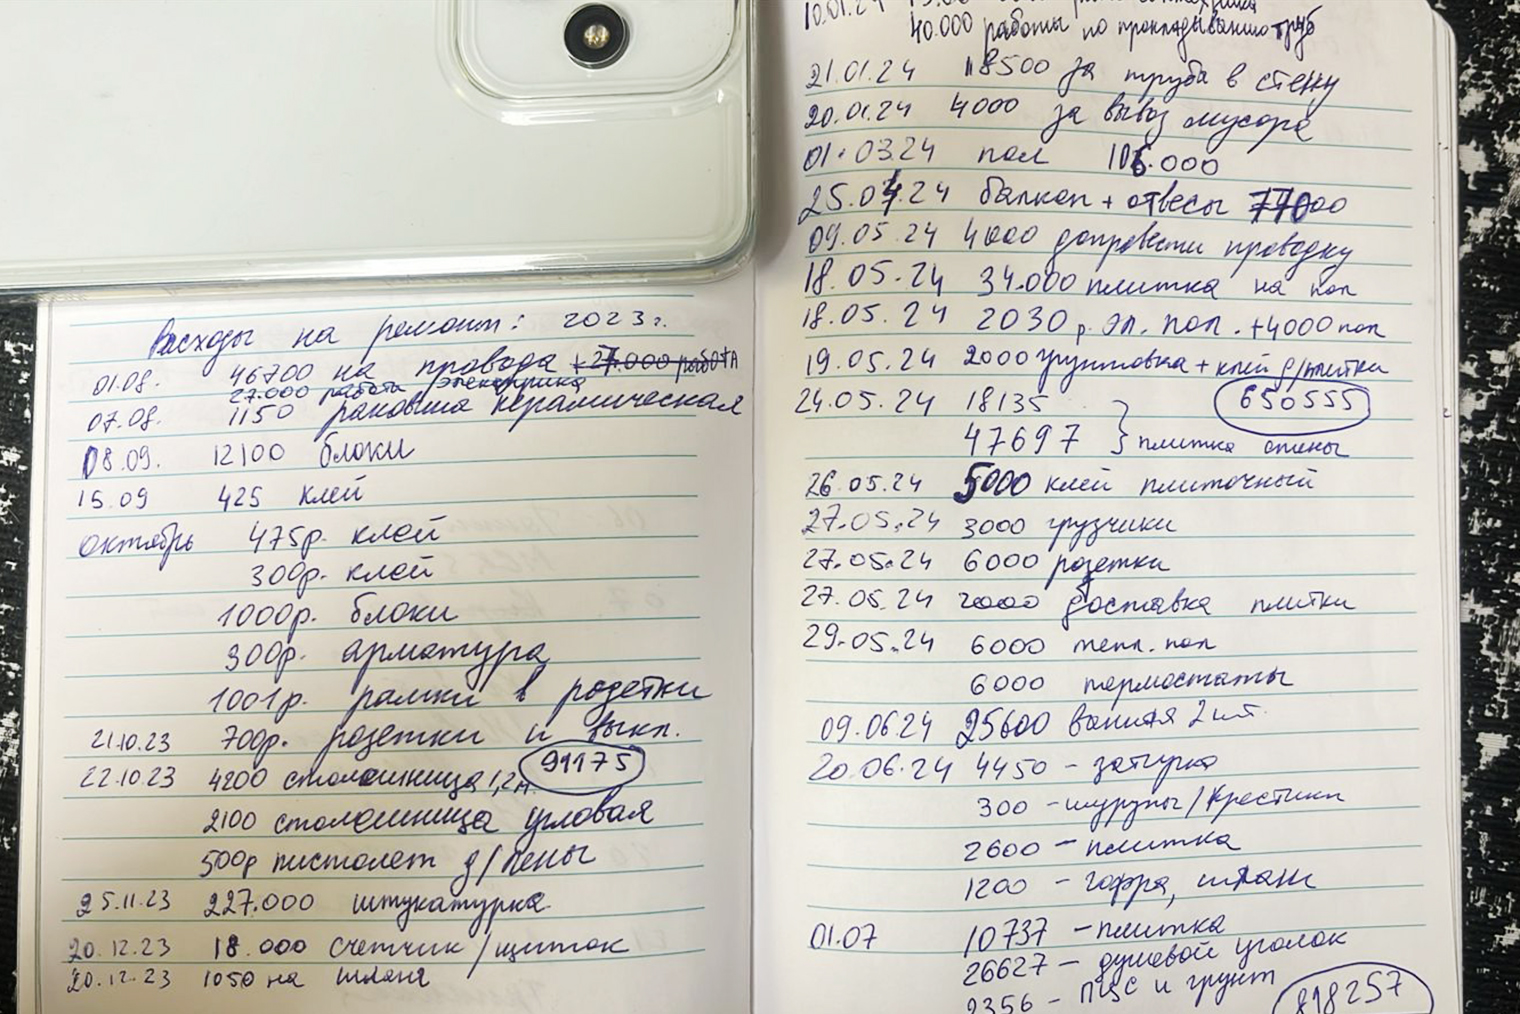 Расходы на ремонт: 2023г.
01.08. 46700 на провода +27.000 работа
27.000 работа электрика
07.08. 1150 раковина керамическая
08.09. 12100 блоки
15.09 425 клей
октябрь 475р. клей
300р. клей
1000р. блоки
300р. арматура
1001р. рамки в розетки
21.10.23 700р. розетки и выкл.
91175
22.10.23 4200 столешница 1,2м
2100 столешница угловая
500р пистолет д/пены
25.11.23 227.000 штукатурка
20.12.23 18.000 счетчик/щиток
20.12.23 1050 на шланг
10.01.24
40.000 работы по прокладыванию труб
21.01.24 18500 за труба в стену
20.01.24 4000 за вывоз мусора
01.03.24 пол 106.000
25.04.24 балкон + отвесы 77000
09.05.24 4000 допровести проводку
18.05.24 34.000 плитка на пол
18.05.24 2030р. эл. пол. +4000 пол
19.05.24 2000 грунтовка + клей д/плитки
24.05.24 18135
650555
47697 } плитка стены
26.05.24 5000 клей плиточный
27.05.24 3000 грузчики
27.05.24 6000 розетки
27.05.24 2000 доставка плитки
29.05.24 6000 тепл. пол
6000 термостаты
09.06.24 25600 ванная 2шт.
20.06.24 4450 - затирка
300 - шурупы/крестики
2600 - плитка
1200 - гофра, шланг
01.07 10737 - плитка
26627 - душевой уголок
2356 - ПЦС и грунт
818257